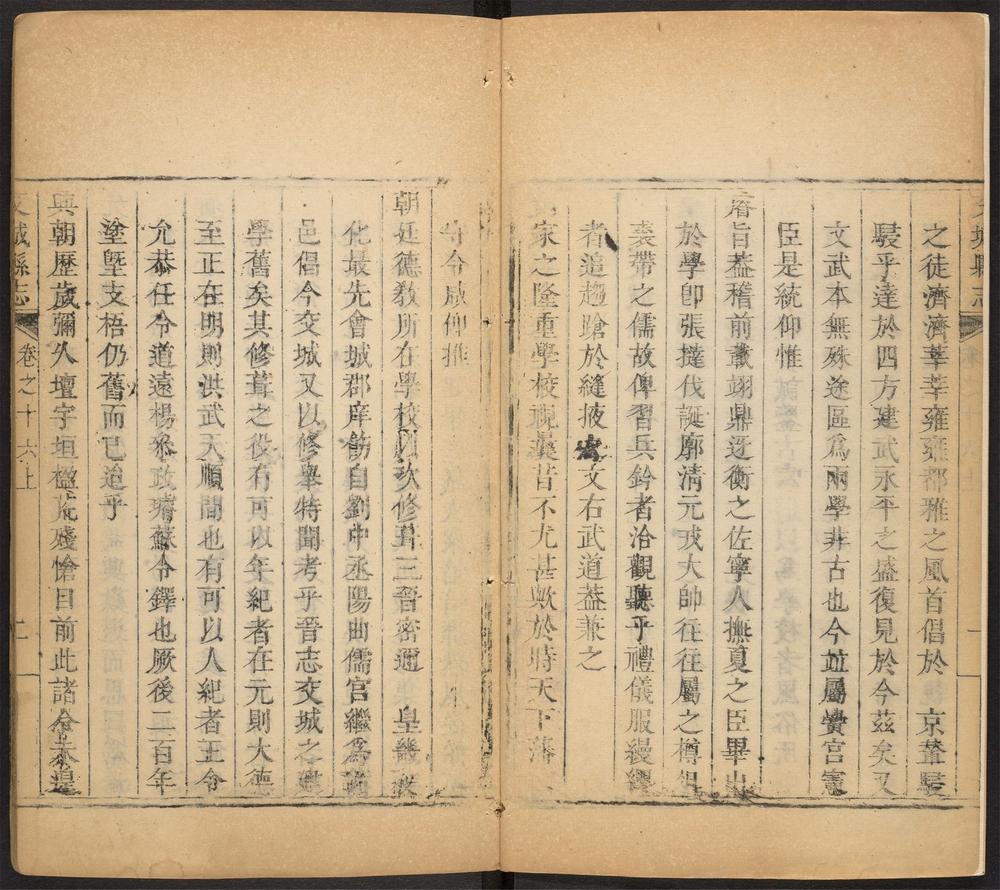 之徒濟濟莘莘雍雍都雅之風首倡於 京輦駸
駸乎達於四方建武永平之盛復見於今茲矣又
文武本無殊途區為兩學非古也今竝屬黌宮憲
臣是統仰惟
睿旨葢稽前載翊鼎迓衡之佐寧人撫夏之臣畢出
於學卽張撻伐誕廓清元戎大帥往往屬之樽俎
裘帶之儒故俾習兵鈐者洽觀聽乎禮儀服縵纓
者追趨蹌於縫掖 文右武道葢兼之
家之隆重學校視曩昔不尤甚歟於時天下藩
守令咸仰推
朝廷德教所在學校 修葺三晉密邇 皇畿
化最先會城郡庠飭自劉中丞陽曲儒官繼為
邑倡今交城又以修舉特聞考乎晉志交城之建
學舊矣其修葺之役有可以年紀者在元則大德
至正在明則洪武天順間也有可以人紀者王令
允恭任令道遠楊叅政瓚蘇令鐸也厥後二百年
塗墍支梧仍舊而已迨乎
興朝歷歲彌久壇宇垣楹荒殘愴目前此諸令未遑
交城縣志 卷之十六上 二